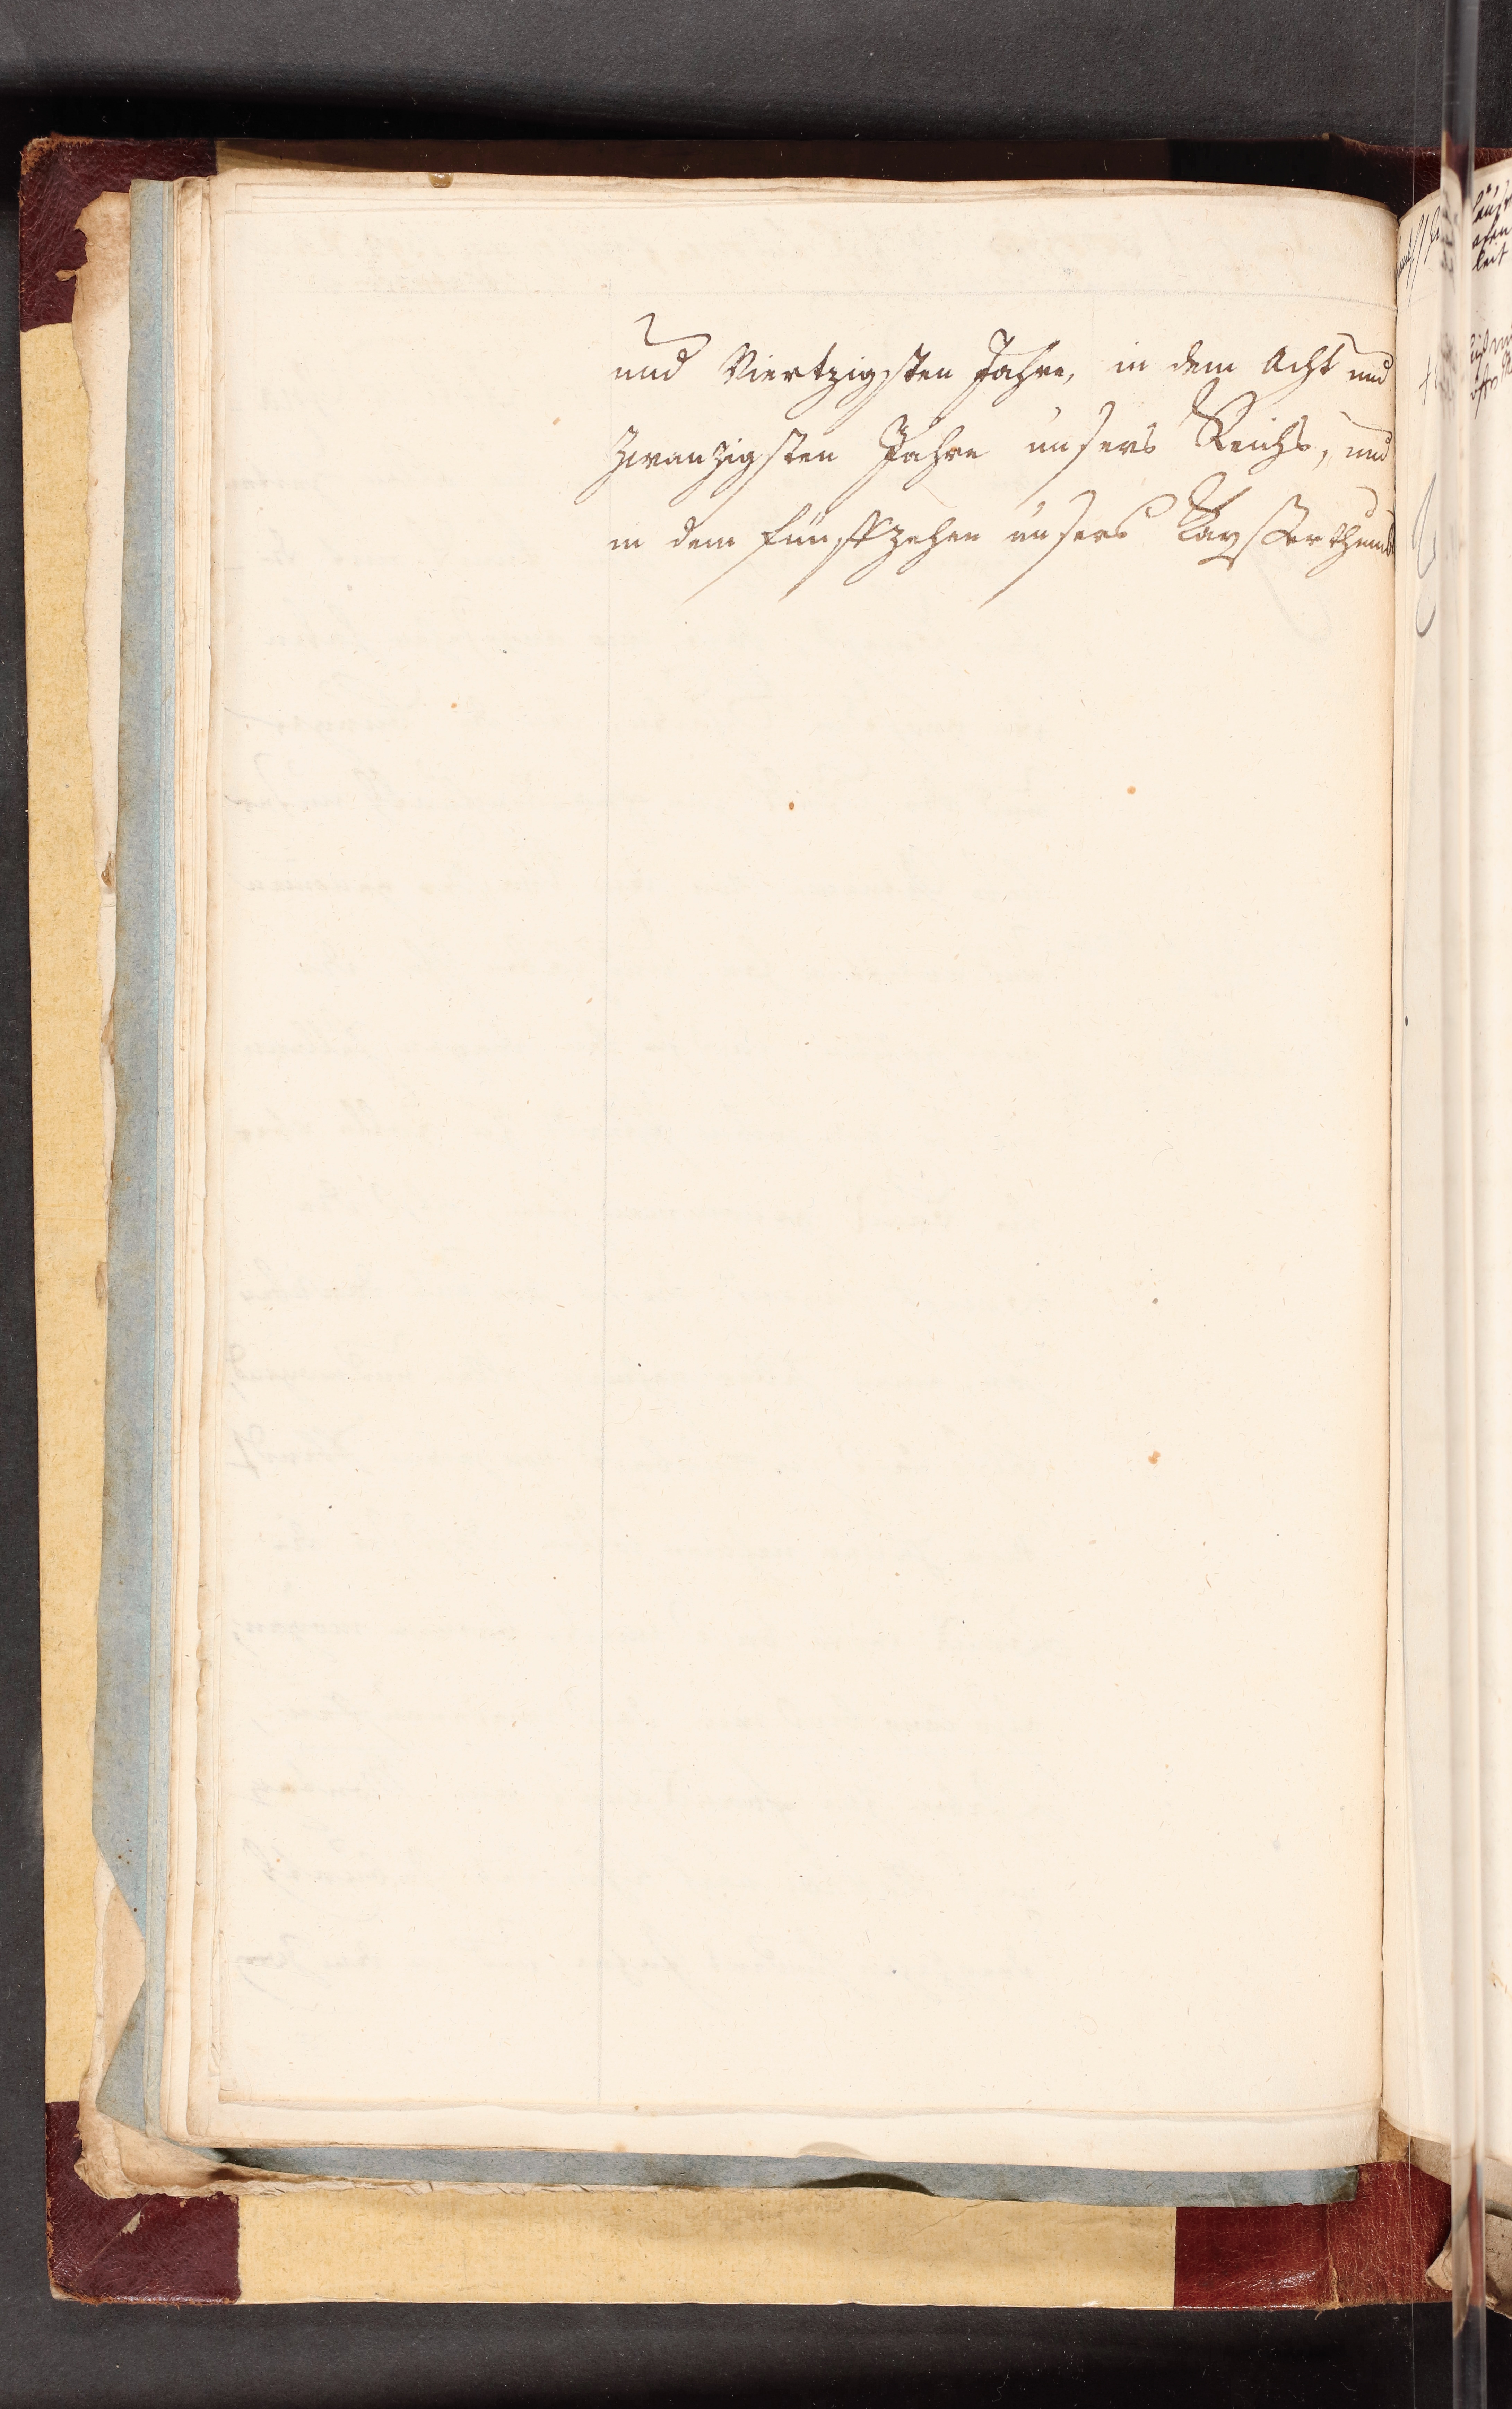 und Viertzigsten Jahre, in dem Acht und
Zwanzigsten Jahre unsers Reichs, und
in dem funffzehen unsers Kayßerthumbs